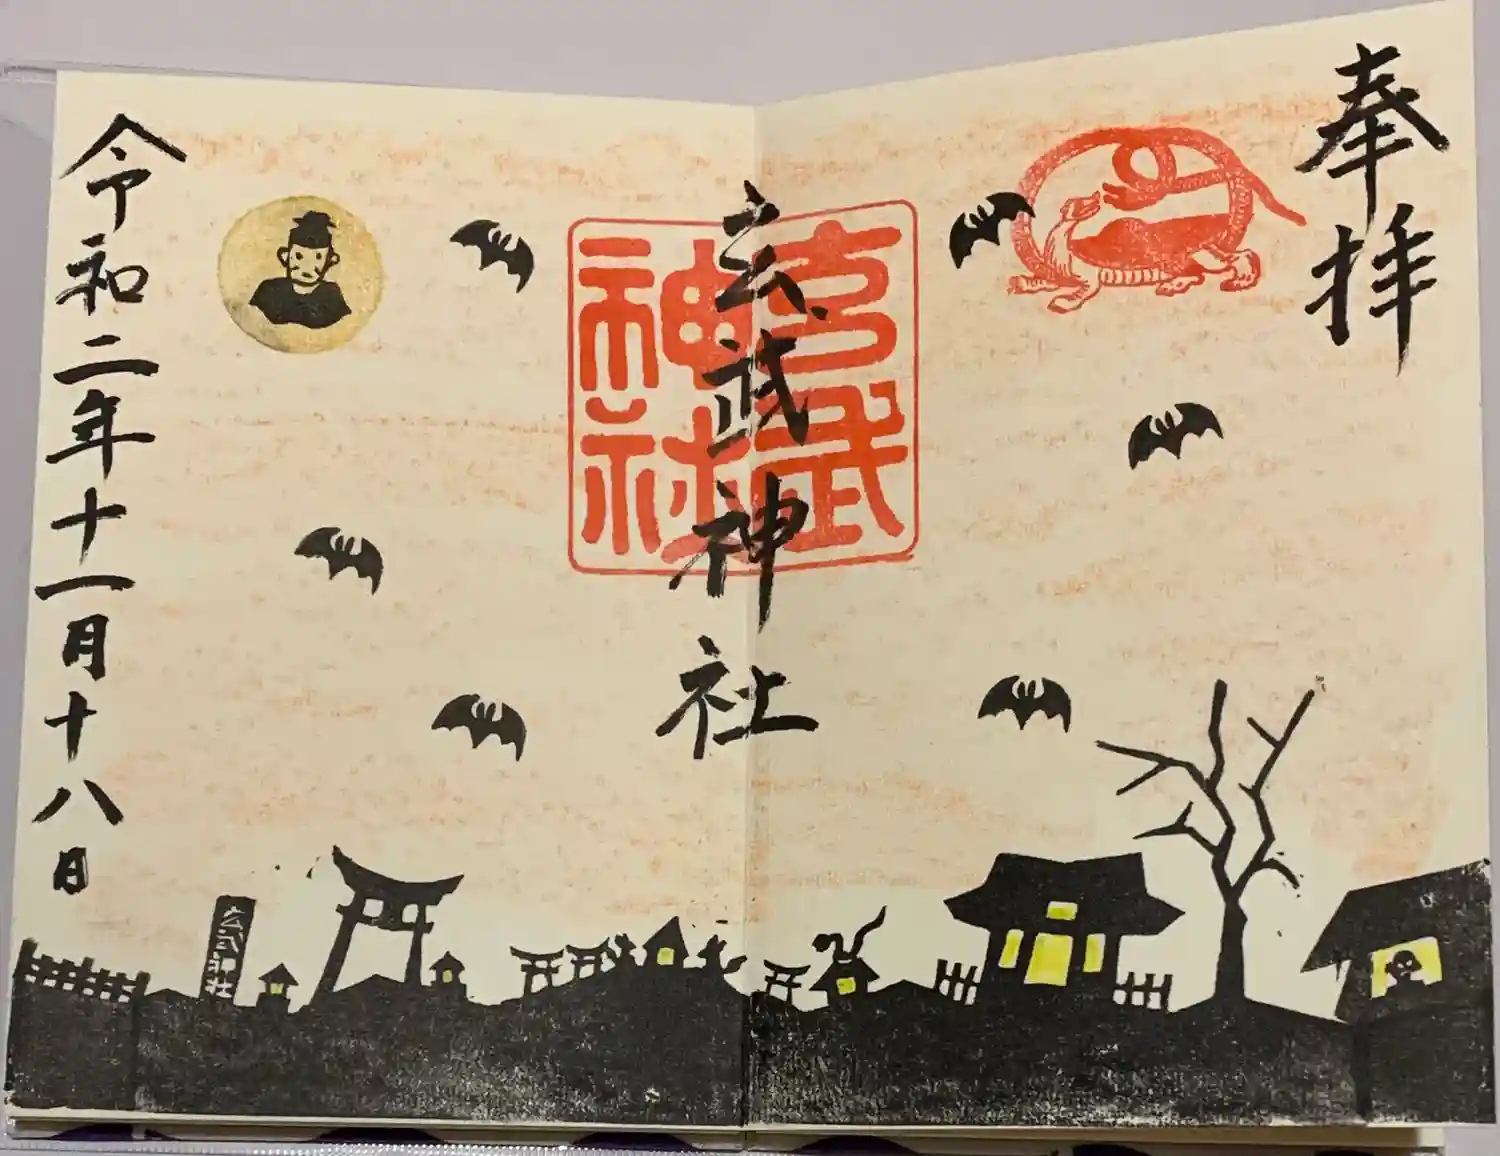 奉拝
玄武神社
玄武神社
令和二年十一月十八日
玄武神社